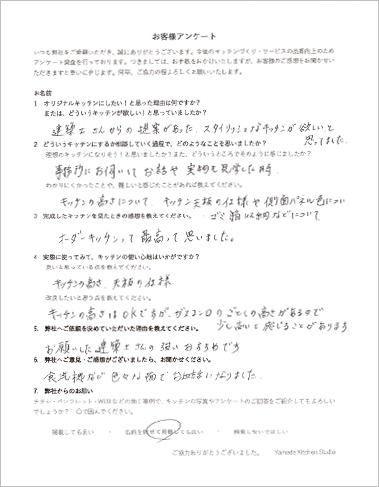 お客様アンケート
いつも弊社をご愛顧いただき、誠にありがとうございます。今後のキッチンづくり・サービスの品質向上のため
アンケート調査を行っております。つきましては、お手数をおかけいたしますが、お客様のご感想をお聞かせい
ただきますと幸いに存じます。何卒、ご協力の程よろしくお願いいたします。
お名前
1 オリジナルキッチンにしたい！と思った理由は何ですか？
または、どういうキッチンが欲しい！と思っていましたか？
建築士さんからの提案があった、スタイリッシュなキッチンが欲しいと
思ってました。
2 どういうキッチンにするか相談していく過程で、どのようなことを思いましたか？
理想のキッチンになりそう！と思いましたか？また、どういうところでそのように感じましたか？
事務所にお伺いしてお話や実物を見学した時
わかりにくかったことや、難しいと感じたことがあれば教えてください。
キッチンの高さについて、キッチン天板の仕様や側面パネル色につい
ゴミ箱収納などについて
3 完成したキッチンを見たときの感想を教えてください。
オーダーキッチンって最高って思いました。
4 実際に使ってみて、キッチンの使い心地はいかがですか？
良いと思っている点を教えてください。
キッチンの高さ、天板の仕様
改良したいと思う点を教えてください。
キッチンの高さはOKですが、ガスコンロのごとくの高さがあるので
少し高いと感じることがあります
5 弊社へご依頼を決めていただいた理由を教えてください。
お願いした建築士さんの強いおすすめです
6 弊社へご意見・ご感想がございましたら、お聞かせください。
食洗機など色々な面でお世話になりました。
7 弊社からのお願い
チラシ・パンフレット・WEBなどの施工事例で、キッチンの写真やアンケートのご回答をご紹介してもよろしい
でしょうか？ ○で囲んでください。
掲載しても良い ・ 名前を伏せて掲載しても良い ・ 掲載しないでほしい
ご協力ありがとうございました。 Yamada Kitchen Studio